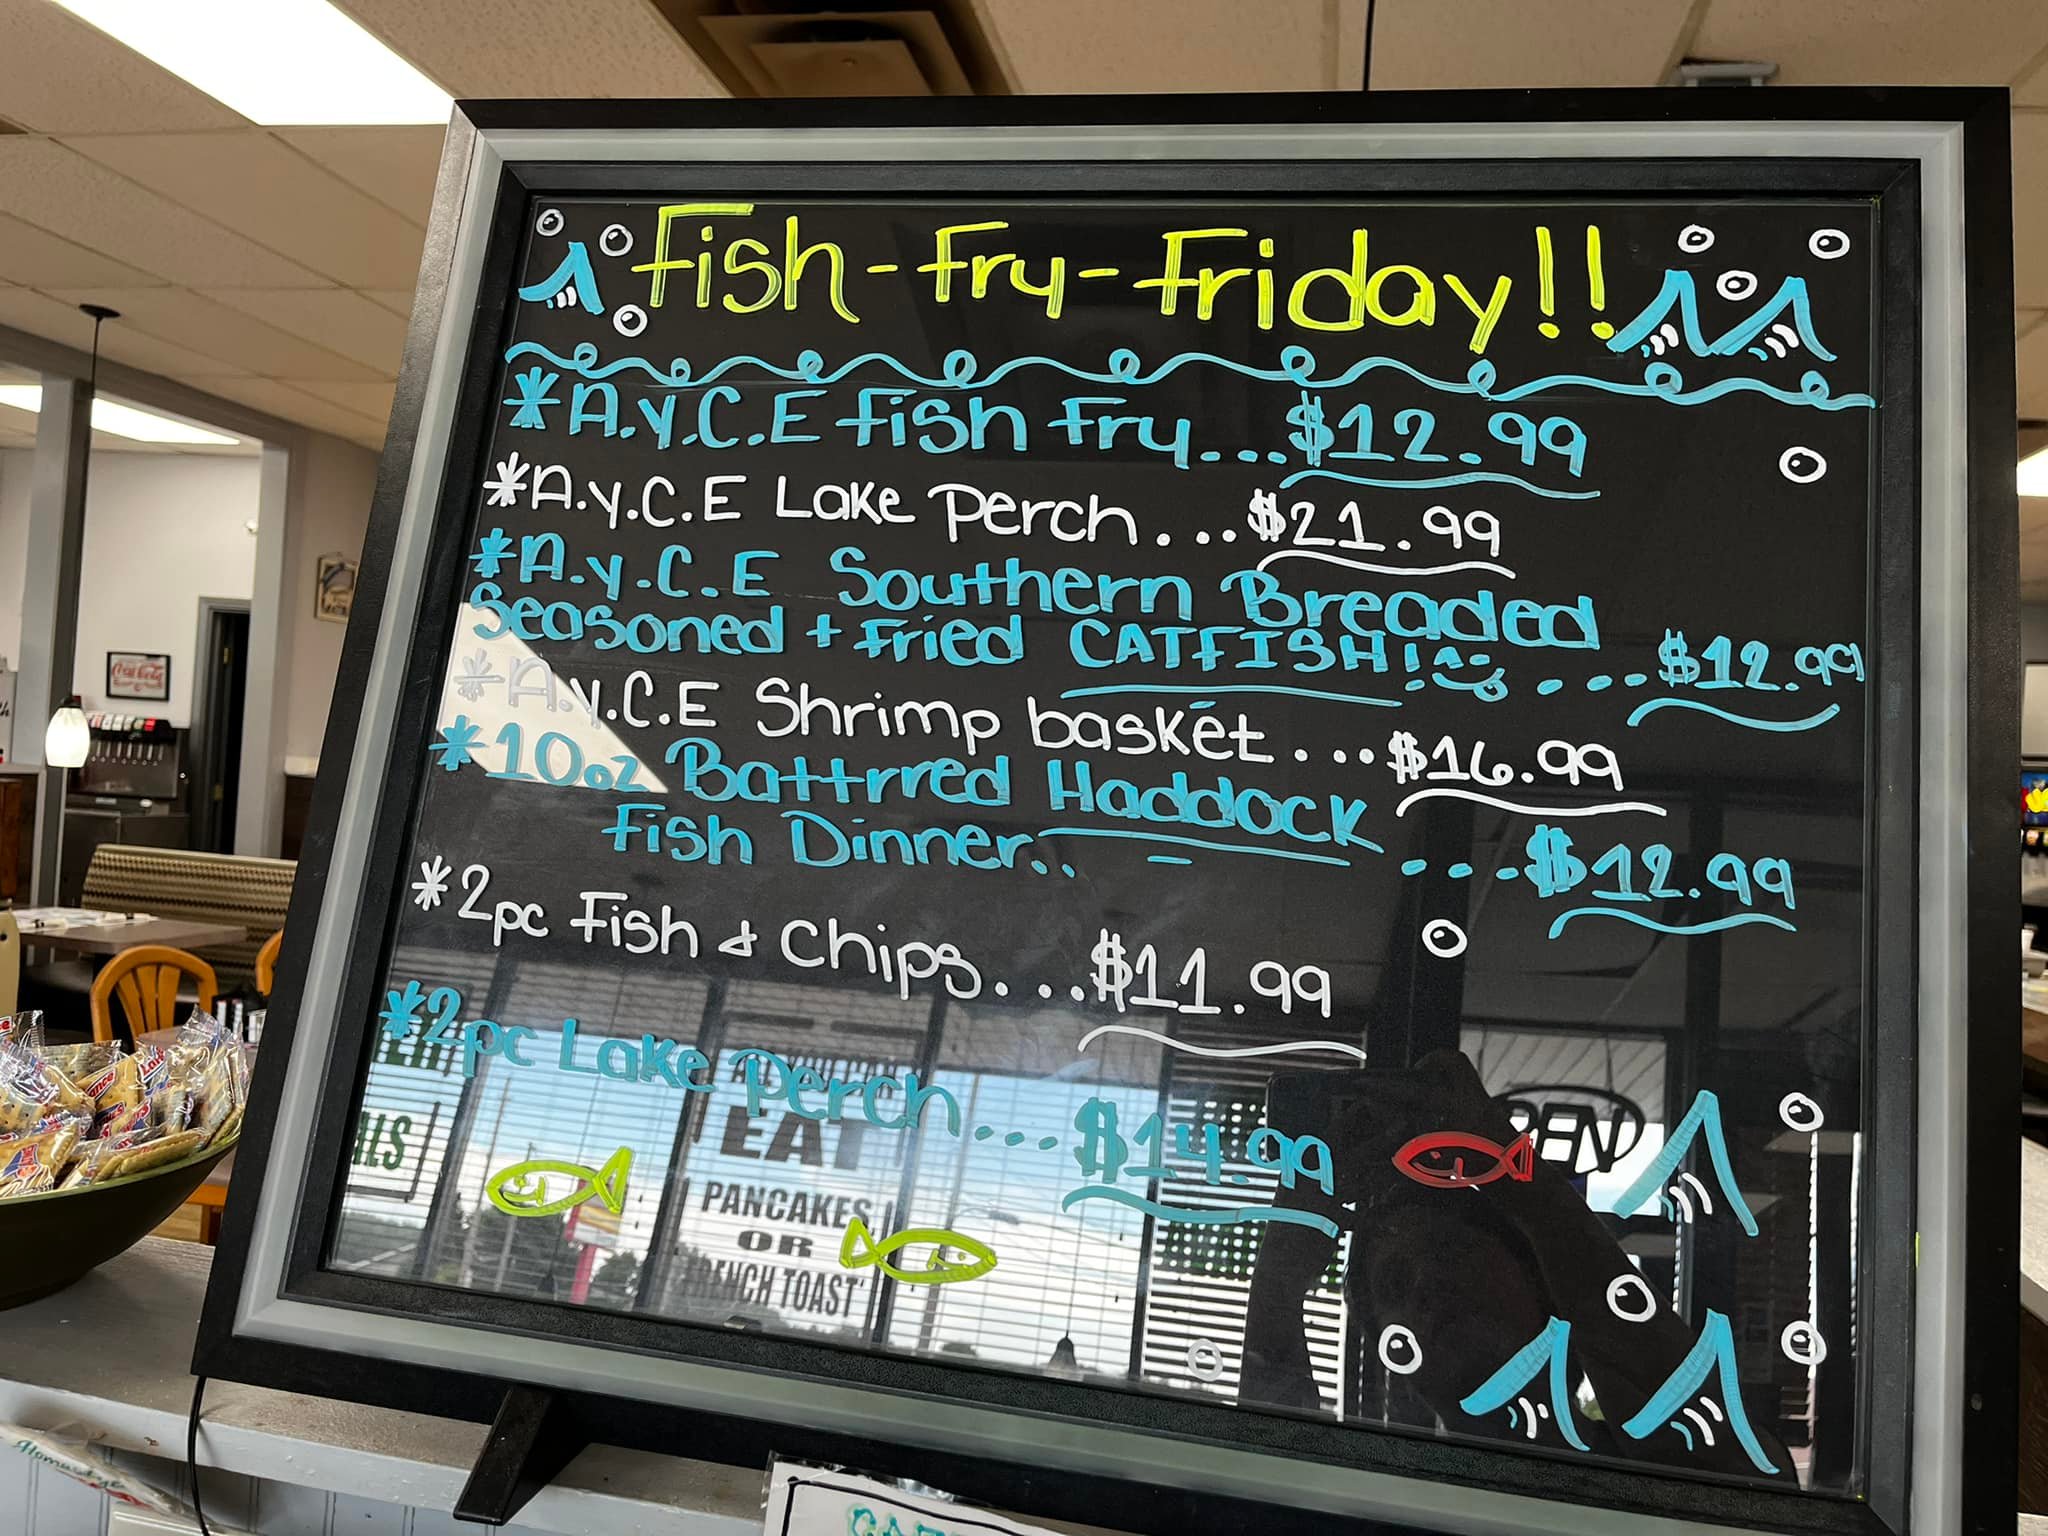 Fish-Fry-Friday!!
*A.Y.C.E Fish Fry...$12.99
*A.Y.C.E Lake Perch...$21.99
*A.Y.C.E Southern Breaded
Seasoned + Fried CATFISH!....$12.99
*A.Y.C.E Shrimp basket...$16.99
*10oz Battrred Haddock
Fish Dinner.. ...$12.99
*2pc Fish & Chips...$11.99
*2pc Lake Perch...$14.99
EAT
PANCAKES
OR
FRENCH TOAST
Coca-Cola
Lance